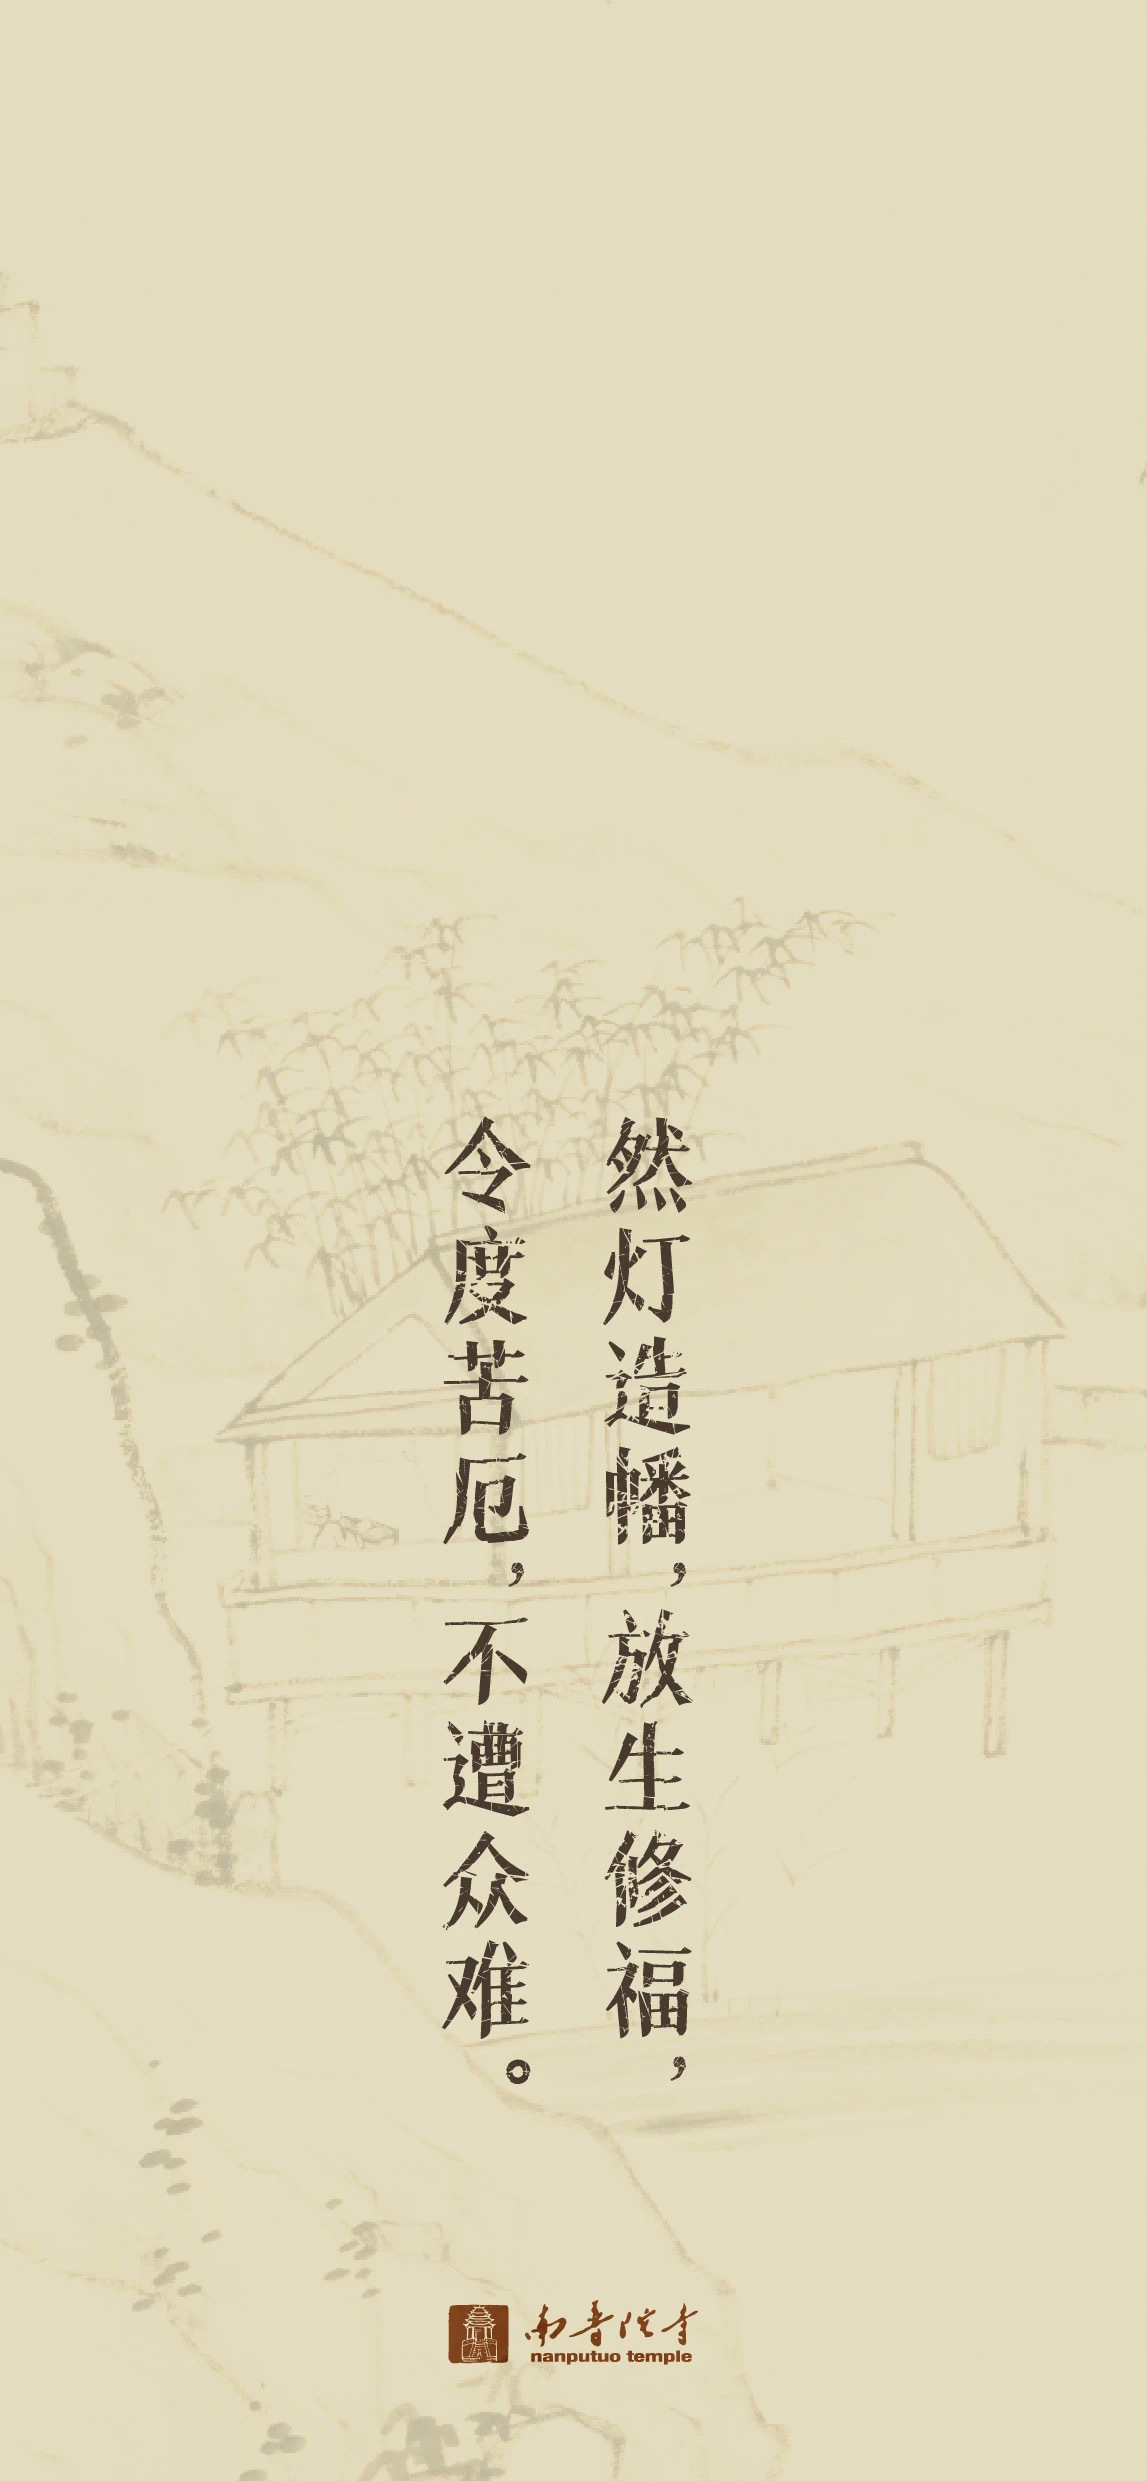 然灯造幡，放生修福，
令度苦厄，不遭众难。
南普陀寺
nanputuo temple